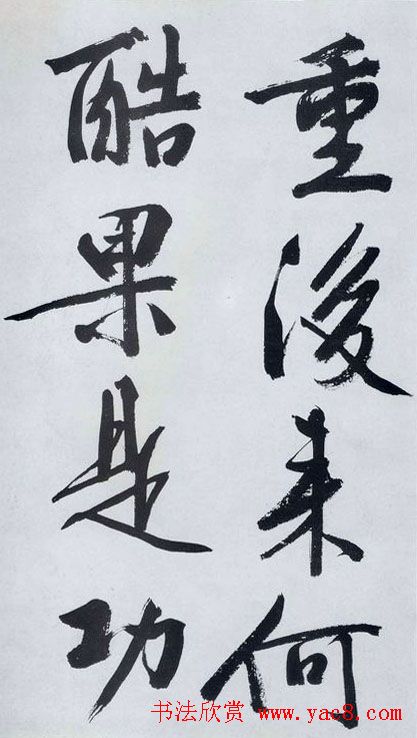 重後来何
酷果是功
书法欣赏 www.yac8.com